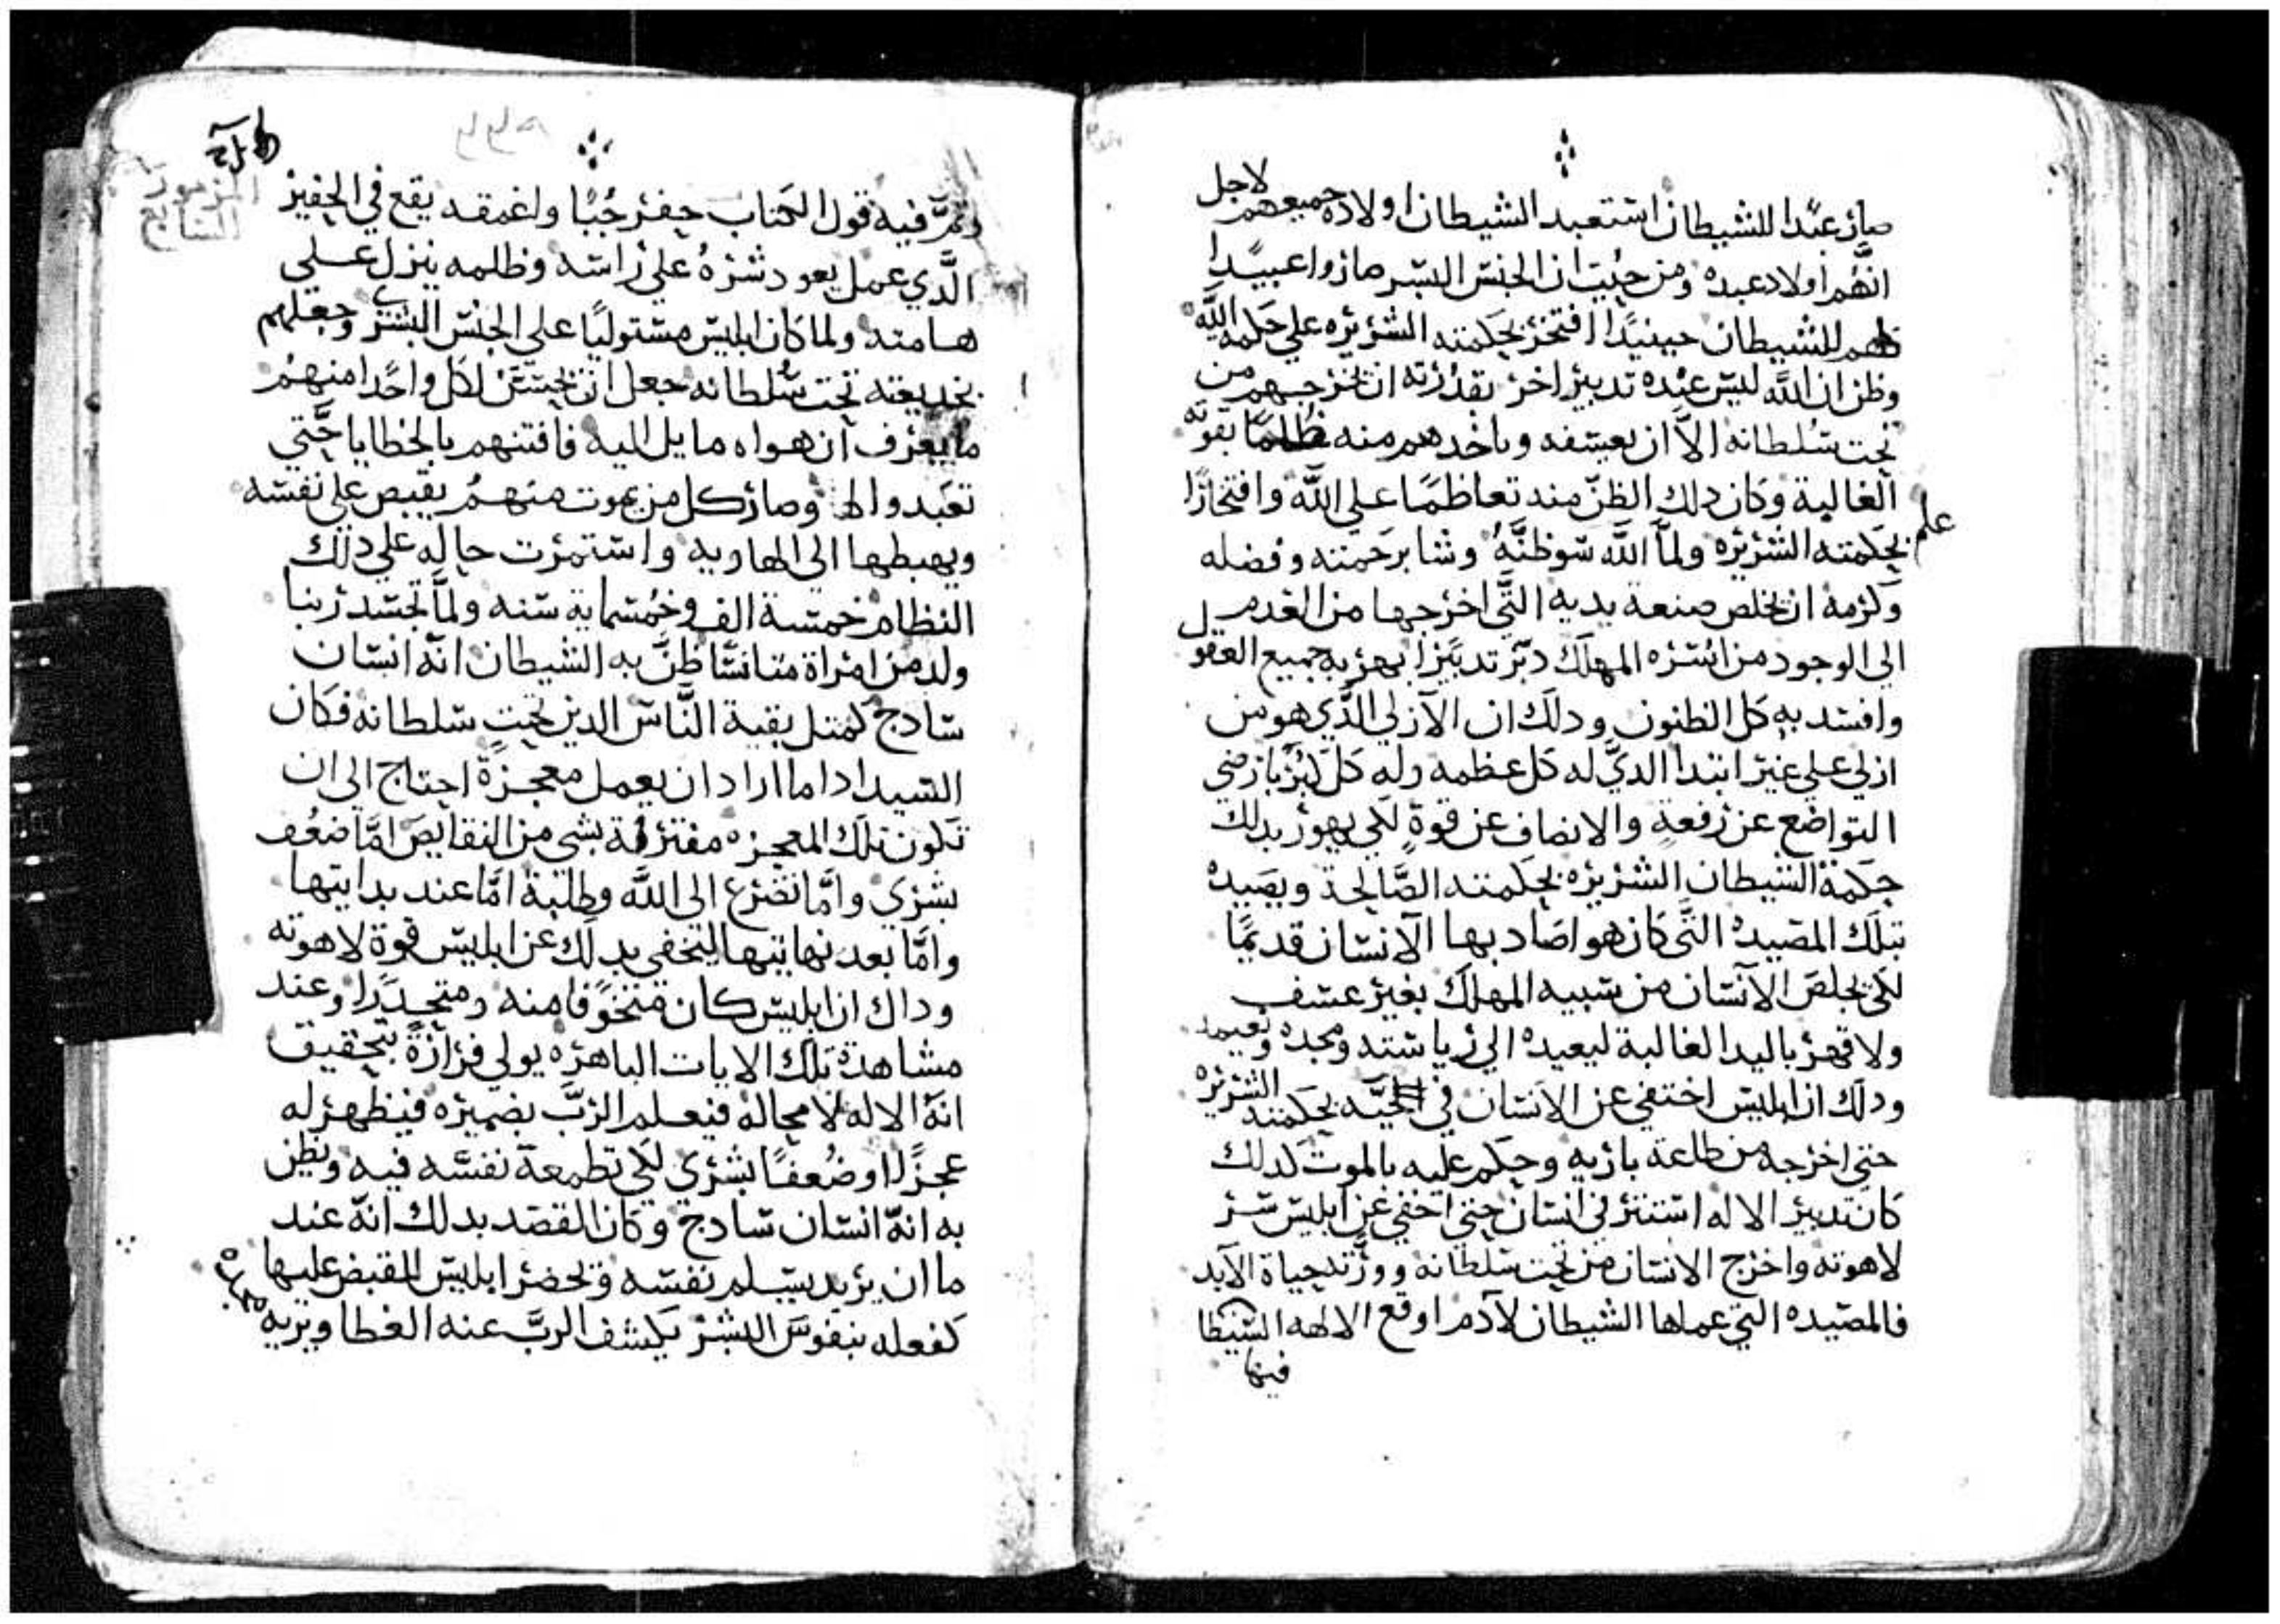 صار عبدًا للشيطان استعبد الشيطان اولاده جميعهم لاجل
انهُم اولاد عبده ومن حيُت ان الجنس البشر صاروا عبيدًا
كلهم للشيطان حينيدًا افتخر بحكمته الشريره علي حكمة اللَّه
وظن ان اللَّه ليس عنده تدبير اخر بقدرته ان يخرجهم من
تحت سُلطانه الاَّ ان يعسفه وياخدهم منه ظلمًا بقوته
الغالبة وكان دلك الظنّ منه تعاظمًا علي اللَّه وافتخارًا
بحكمته الشريره ولمَّا علم اللَّه سو ظنَّهُ وشا برحمته وفضله
وكرمه ان يخلص صنعة يديه التَّي اخرجها من العدم
الي الوجود من اسره المهلك دبّر تدبيرًا بهر به جميع العقول
وافسد به كل الظنون ودلك ان الآزلي الدَّي هو من
ازلي علي غير ابتدا الديَّ له كل عظمه وله كلّ كبر بازضي
التواضع عن رفعةٍ والانصاف عن قوةٍ لكي يهور بدلك
حكمة الشيطان الشريره بحكمته الصَّالحة ويصَيده
بتلك المصيدهُ التَّي كان هو اصَاد بها الآنسان قديمًا
لكي يخلصَ الآنسان من سبيه المهلك بغير عسف
ولا قهر باليد الغالبة ليعيده الي رياسته ومجده ونعيمه
ودلك ان ابليس اختفي عن الانسان في الحيَّه بحكمته الشريره
حتي اخرجه من طاعة باريه وحكم عليه بالموت كدلك
كان تدبير الاله استتر في انسان حتي اخفي عن ابليس سر
لاهوته واخرج الانسان من تحت سلطانه وورَّته حياة الآبد
فالمصَيده التي عملها الشيطان لآدم اوقع الالهه الشيطا
فيها
وتمَّ فيه قول الكتاب حفر جُبًا واغمقه يقع في الحفير
الَّدي عمل يعود شرهُ علي راسه وظلمه ينزل علي
هامته ولما كان ابليس مستوليًا علي الجنس البشري وجعلهم
بخديعته تحت سُلطانه جعل ان يحسّن لكل واحدًا منهمُ
ما يعرف ان هواه مايل اليه فافتنهم بالخطايا حَّتي
تعَبدوا له وصار كل من يموت منهمُ يقبص علي نفسه
ويهبطها الي الهاويه واستمرت حاله علي دلك
النظام خمسة الف وخُمسماية سنه ولمَّا تجسد ربنا
ولد من امراة متانسًا ظنَّ به الشيطان انَّه انسان
سادج كمتل بقية النَّاس الدين تحت سلطانه فكان
السيد ادا ما اراد ان يعمل معجزةً احتاج الي ان
تكون تلك المعجزه مفترقة بشي من النقايصَ امَّا ضعُف
بشري وامَّا تضرع الي اللَّه وطلبة امَّا عند بدايتها
وامَّا بعد نهايتها ليختفي بدلك عن ابليس قوة لاهوته
وداك ان ابليس كان متخوًفا منه ومتحدّرًا وعند
مشاهدة تلك الايات الباهره يولي فرارةً بتحقيق
انهُ الاله لا محاله فيعلم الربَّ بضميره فيظهر له
عجزًا او ضُعفًا بشري لكي تطمعهَ نفسَّه فيه ويظن
به انهّ انسان سادج وكان القصَد بدلك انهّ عند
ما ان يريد يسلم نفسه ويحضر ابليس للقبض عليها
كفعله بنفوسَ البشر يكشف الربَّ عنه الغطا ويريه